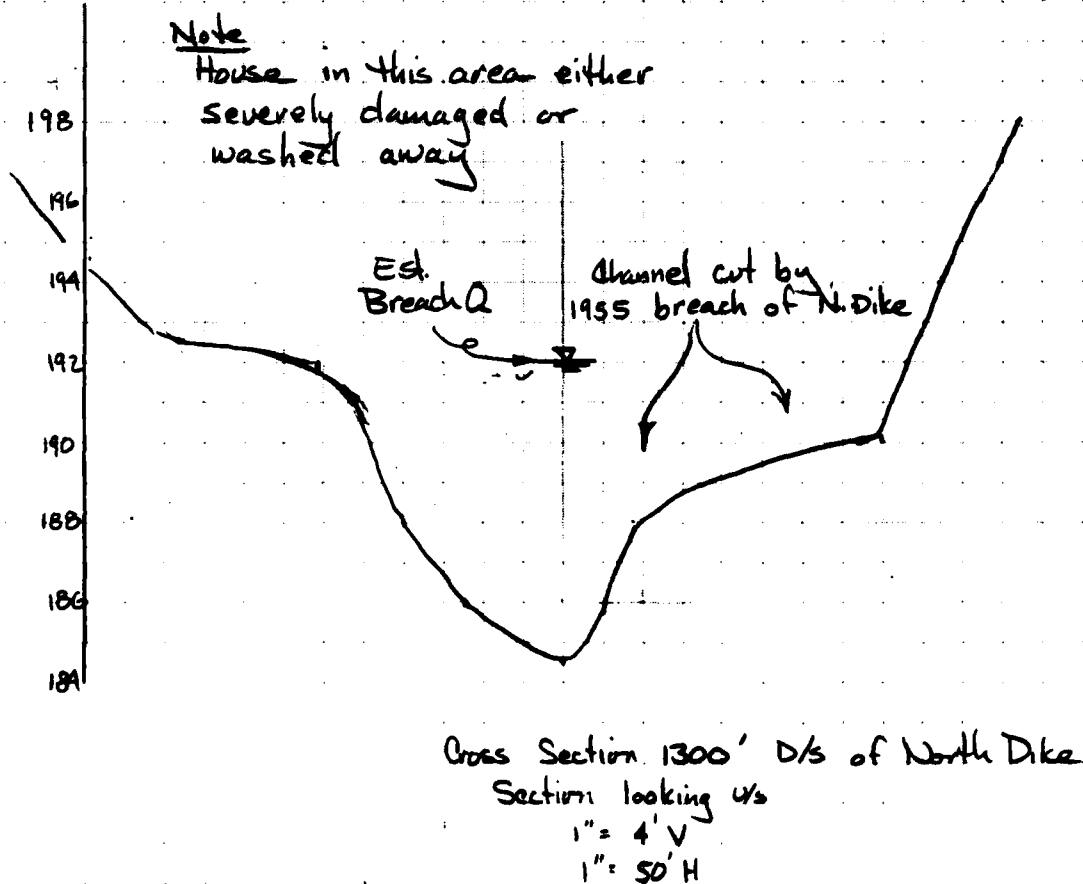 Note
House in this area either
severely damaged or
washed away
198
196
194
192
190
188
186
184
Est.
Breach Q
Channel cut by
1955 breach of N. Dike
Cross Section 1300' D/s of North Dike
Section looking u/s
1" = 4' V
1" = 50' H